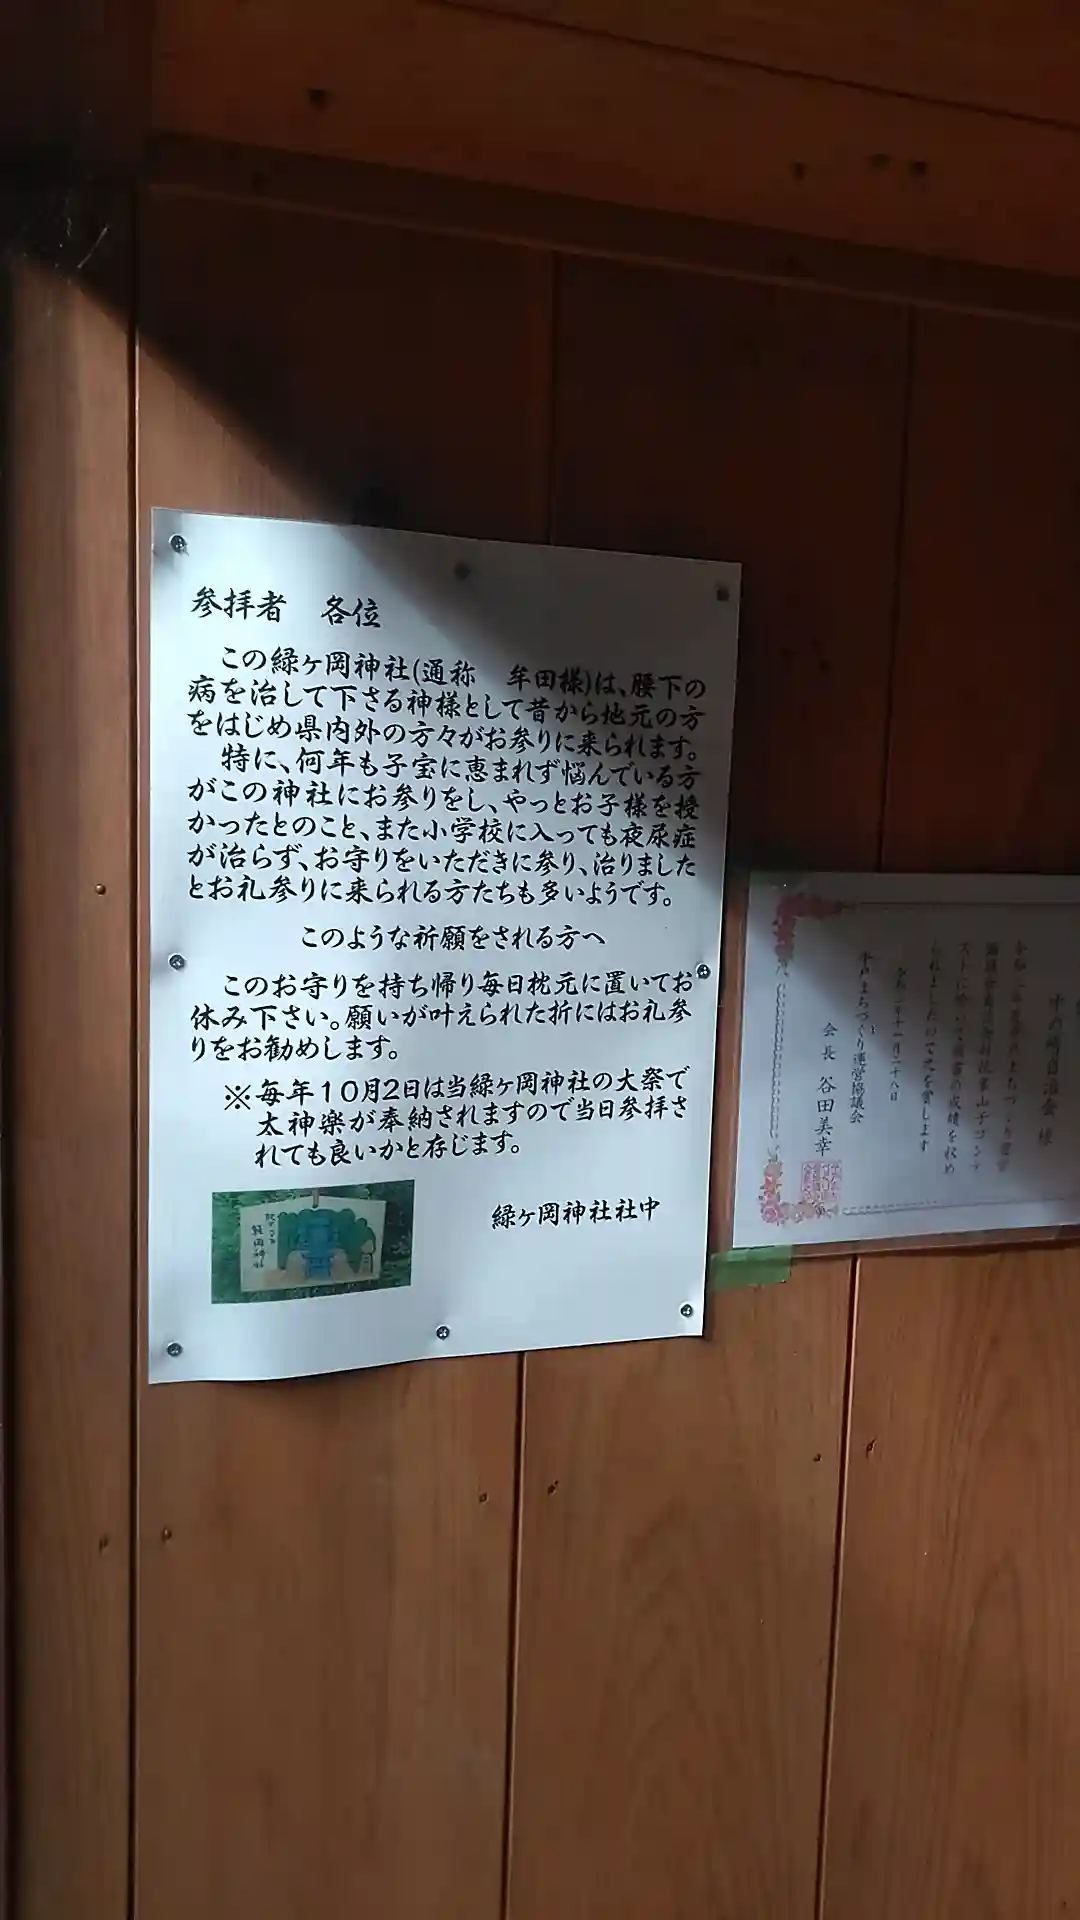 参拝者　各位
この緑ヶ岡神社(通称　牟田様)は、腰下の
病を治して下さる神様として昔から地元の方
をはじめ県内外の方々がお参りに来られます。
特に、何年も子宝に恵まれず悩んでいる方
がこの神社にお参りをし、やっとお子様を授
かったとのこと、また小学校に入っても夜尿症
が治らず、お守りをいただきに参り、治りました
とお礼参りに来られる方たちも多いようです。
このような祈願をされる方へ
このお守りを持ち帰り毎日枕元に置いてお
休み下さい。願いが叶えられた折にはお礼参
りをお勧めします。
※毎年10月2日は当緑ヶ岡神社の大祭で
太神楽が奉納されますので当日参拝さ
れても良いかと存じます。
緑ヶ岡神社社中
自治会 様
られましたので之を賞します
まちづくり運営協議会
会長　谷田美幸